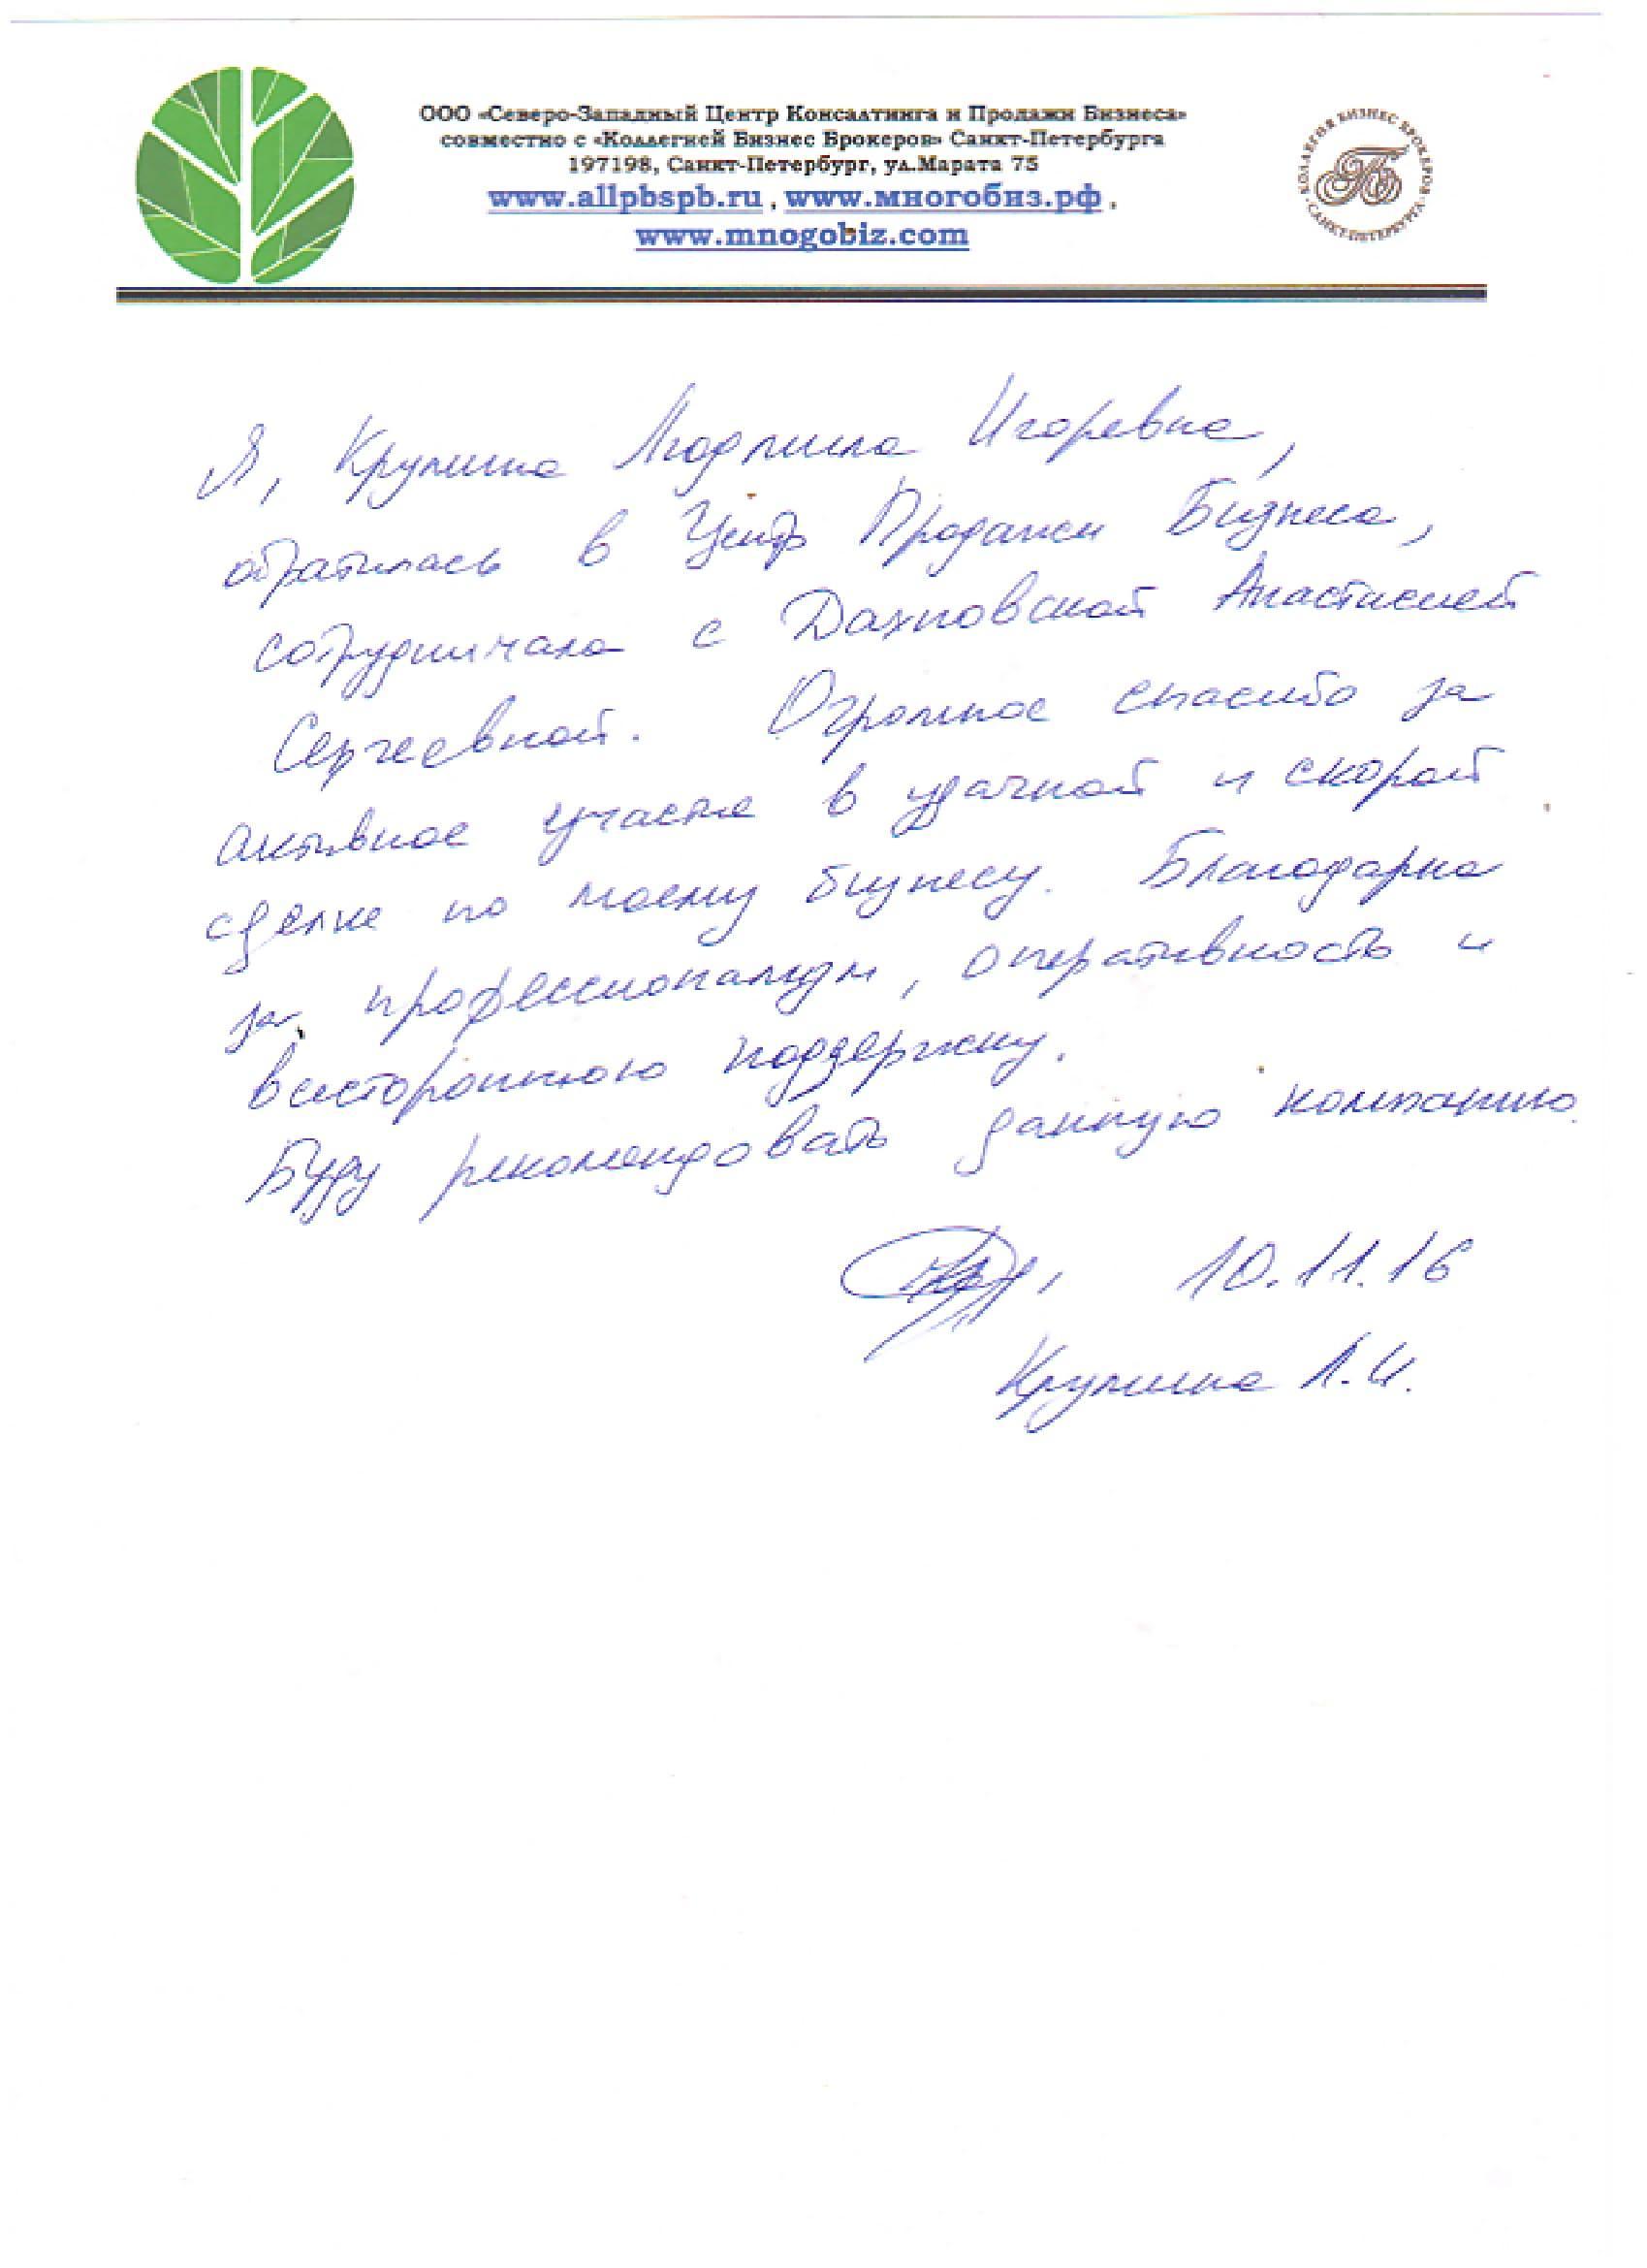 ООО «Северо-Западный Центр Консалтинга и Продажи Бизнеса»
совместно с «Коллегией Бизнес Брокеров» Санкт-Петербурга
197198, Санкт-Петербург, ул.Марата 75
www.allpbspb.ru , www.многобиз.рф ,
www.mnogobiz.com
КОЛЛЕГИЯ БИЗНЕС-БРОКЕРОВ
САНКТ-ПЕТЕРБУРГА
Я, Крупина Людмила Игоревна,
обратилась в Центр Продажи Бизнеса,
сотрудничала с Дахновской Анастасией
Сергеевной. Огромное спасибо за
активное участие в удачной и скорой
сделке по моему бизнесу. Благодарна
за профессионализм, оперативность и
всестороннюю поддержку.
Буду рекомендовать данную компанию.
10.11.16
Крупина Л.И.